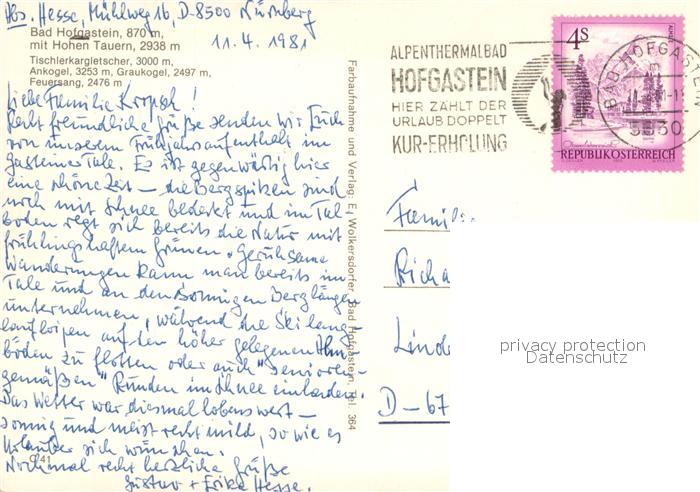 Abs. Hesse, Mühlweg 16, D-8500 Nürnberg
11.4.1981
Bad Hofgastein, 870 m
mit Hohen Tauern, 2938 m
Tischlerkargletscher, 3000 m,
Ankogel, 3253 m, Graukogel, 2497 m,
Feuersang, 2476 m
Liebe Familie Kropsch!
Recht freundliche Grüße senden wir Euch
von unserem Frühjahrsaufenthalt im
Gasteiner Tale. Es ist gegenwärtig hier
eine schöne Zeit – die Bergspitzen sind
noch mit Schnee bedeckt und im Tal-
boden regt sich bereits die Natur mit
frühlingshaftem Grünen. Geruhsame
Wanderungen kann man bereits im
Tale und an den sonnigen Berghängen
unternehmen, während die Skilang-
laufloipen auf den höher gelegenen Alm-
böden zu flotten oder auch "senioren-
gemäßen" Runden im Schnee einladen.
Das Wetter war diesmal lobenswert –
sonnig und meist recht mild, so wie es
Urlauber sich wünschen.
Nochmal recht herzliche Grüße
Gustav + Erika Hesse.
C 41
Farbaufnahme und Verlag: E. Wolkersdorfer, Bad Hofgastein, Tel. 364
ALPENTHERMALBAD
HOFGASTEIN
HIER ZÄHLT DER
URLAUB DOPPELT
KUR-ERHOLUNG
BAD HOFGASTEIN
5630
4 S
REPUBLIK ÖSTERREICH
Famili
Richa
Linde
D-67
privacy protection
Datenschutz